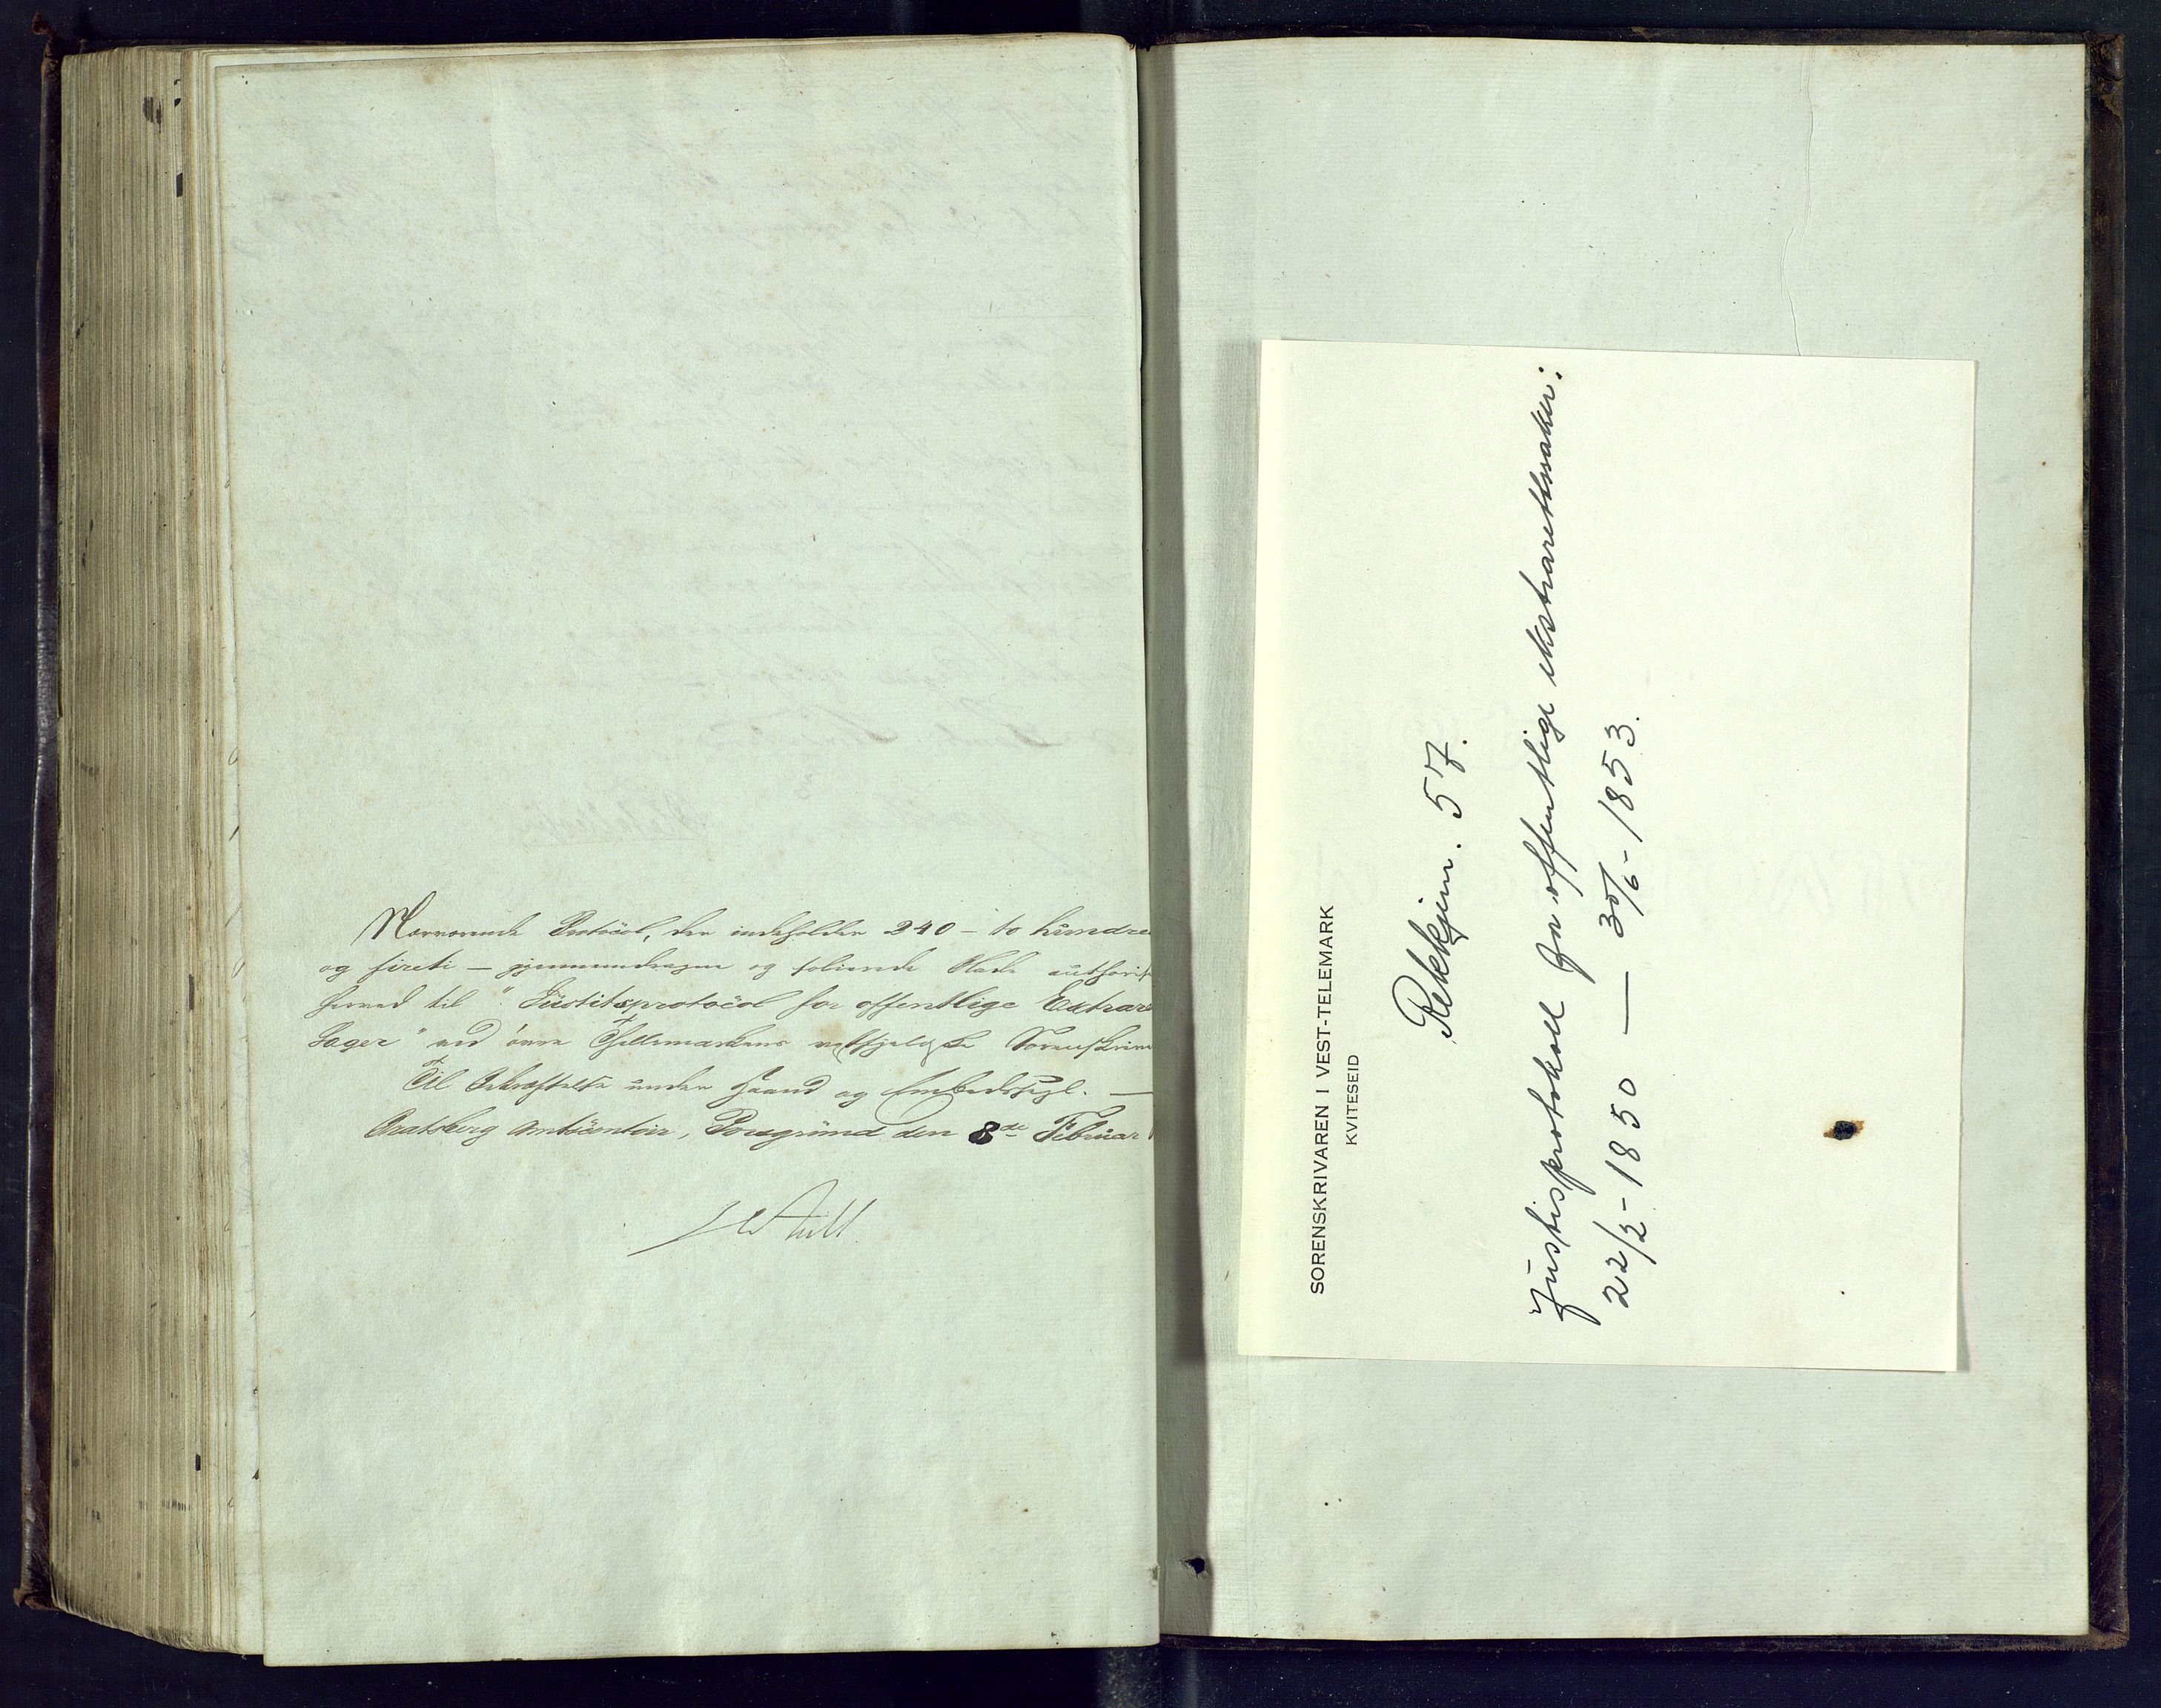 Nærværende Protocol, der indeholder 240 – to hundre
og fireti – gjennemdragne og folierede Blade authoris
herved til "Justitsprotocol for offentlige Extrare
Sager" ved øvre Thellemarkens vestfjeldske Sorenskrive
Til Bekræftelse under Haand og Embedssegl. —
Bratsberg Amtscontoir, Porsgrund den 8de Februar
SORENSKRIVAREN I VEST-TELEMARK
KVITESEID
Rekkjenr. 57.
Justisprotokoll for offentlige ekstrarettssaker:
22/2 - 1850 — 30/6 - 1853.